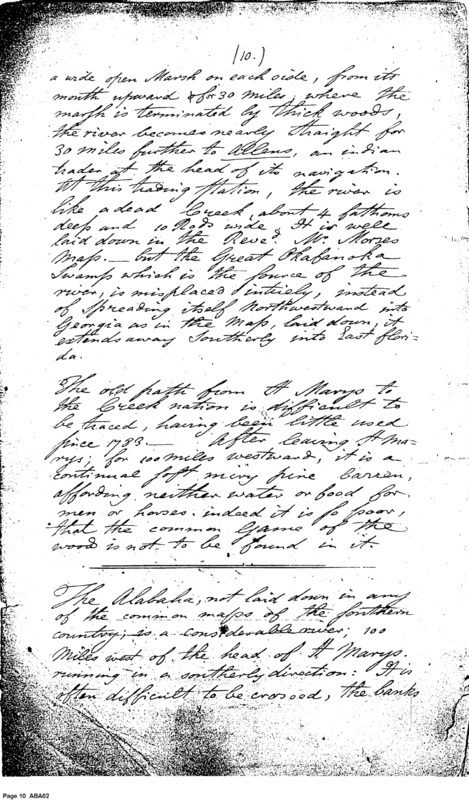 (10.)
a wide open Marsh on each side, from its
mouth upward & for 30 miles; where the
marsh is terminated by thick woods,
the river becomes nearly straight for
30 miles further to Allens, an indian
trader at the head of its navigation.
At this trading station, the river is
like a dead Creek, about 4 fathoms
deep and 10 Rods wide. It is well
laid down in the Revd. Mr. Morzes
Map. — but the Great Okafanoka
Swamp which is the source of the
river, is misplaced intirely, instead
of spreading itself Northwestward into
Georgia as in the Map, laid down, it
extends away Southerly into East flori-
da.
The old path from St Marys to
the Creek nation is difficult to
be traced, having been little used
since 1783. — After leaving St Ma-
rys; for 100 miles westward, it is a
continual soft miry pine barren,
affording neither water or food for
men or horses. indeed it is so poor,
that the common Game of the
wood is not to be found in it.
The Alabaha, not laid down in any
of the common maps of the southern
country; is a considerable river, 100
Miles west of the head of St Marys.
running in a southerly direction. It is
often difficult to be crossed, the banks
Page 10 ABA02